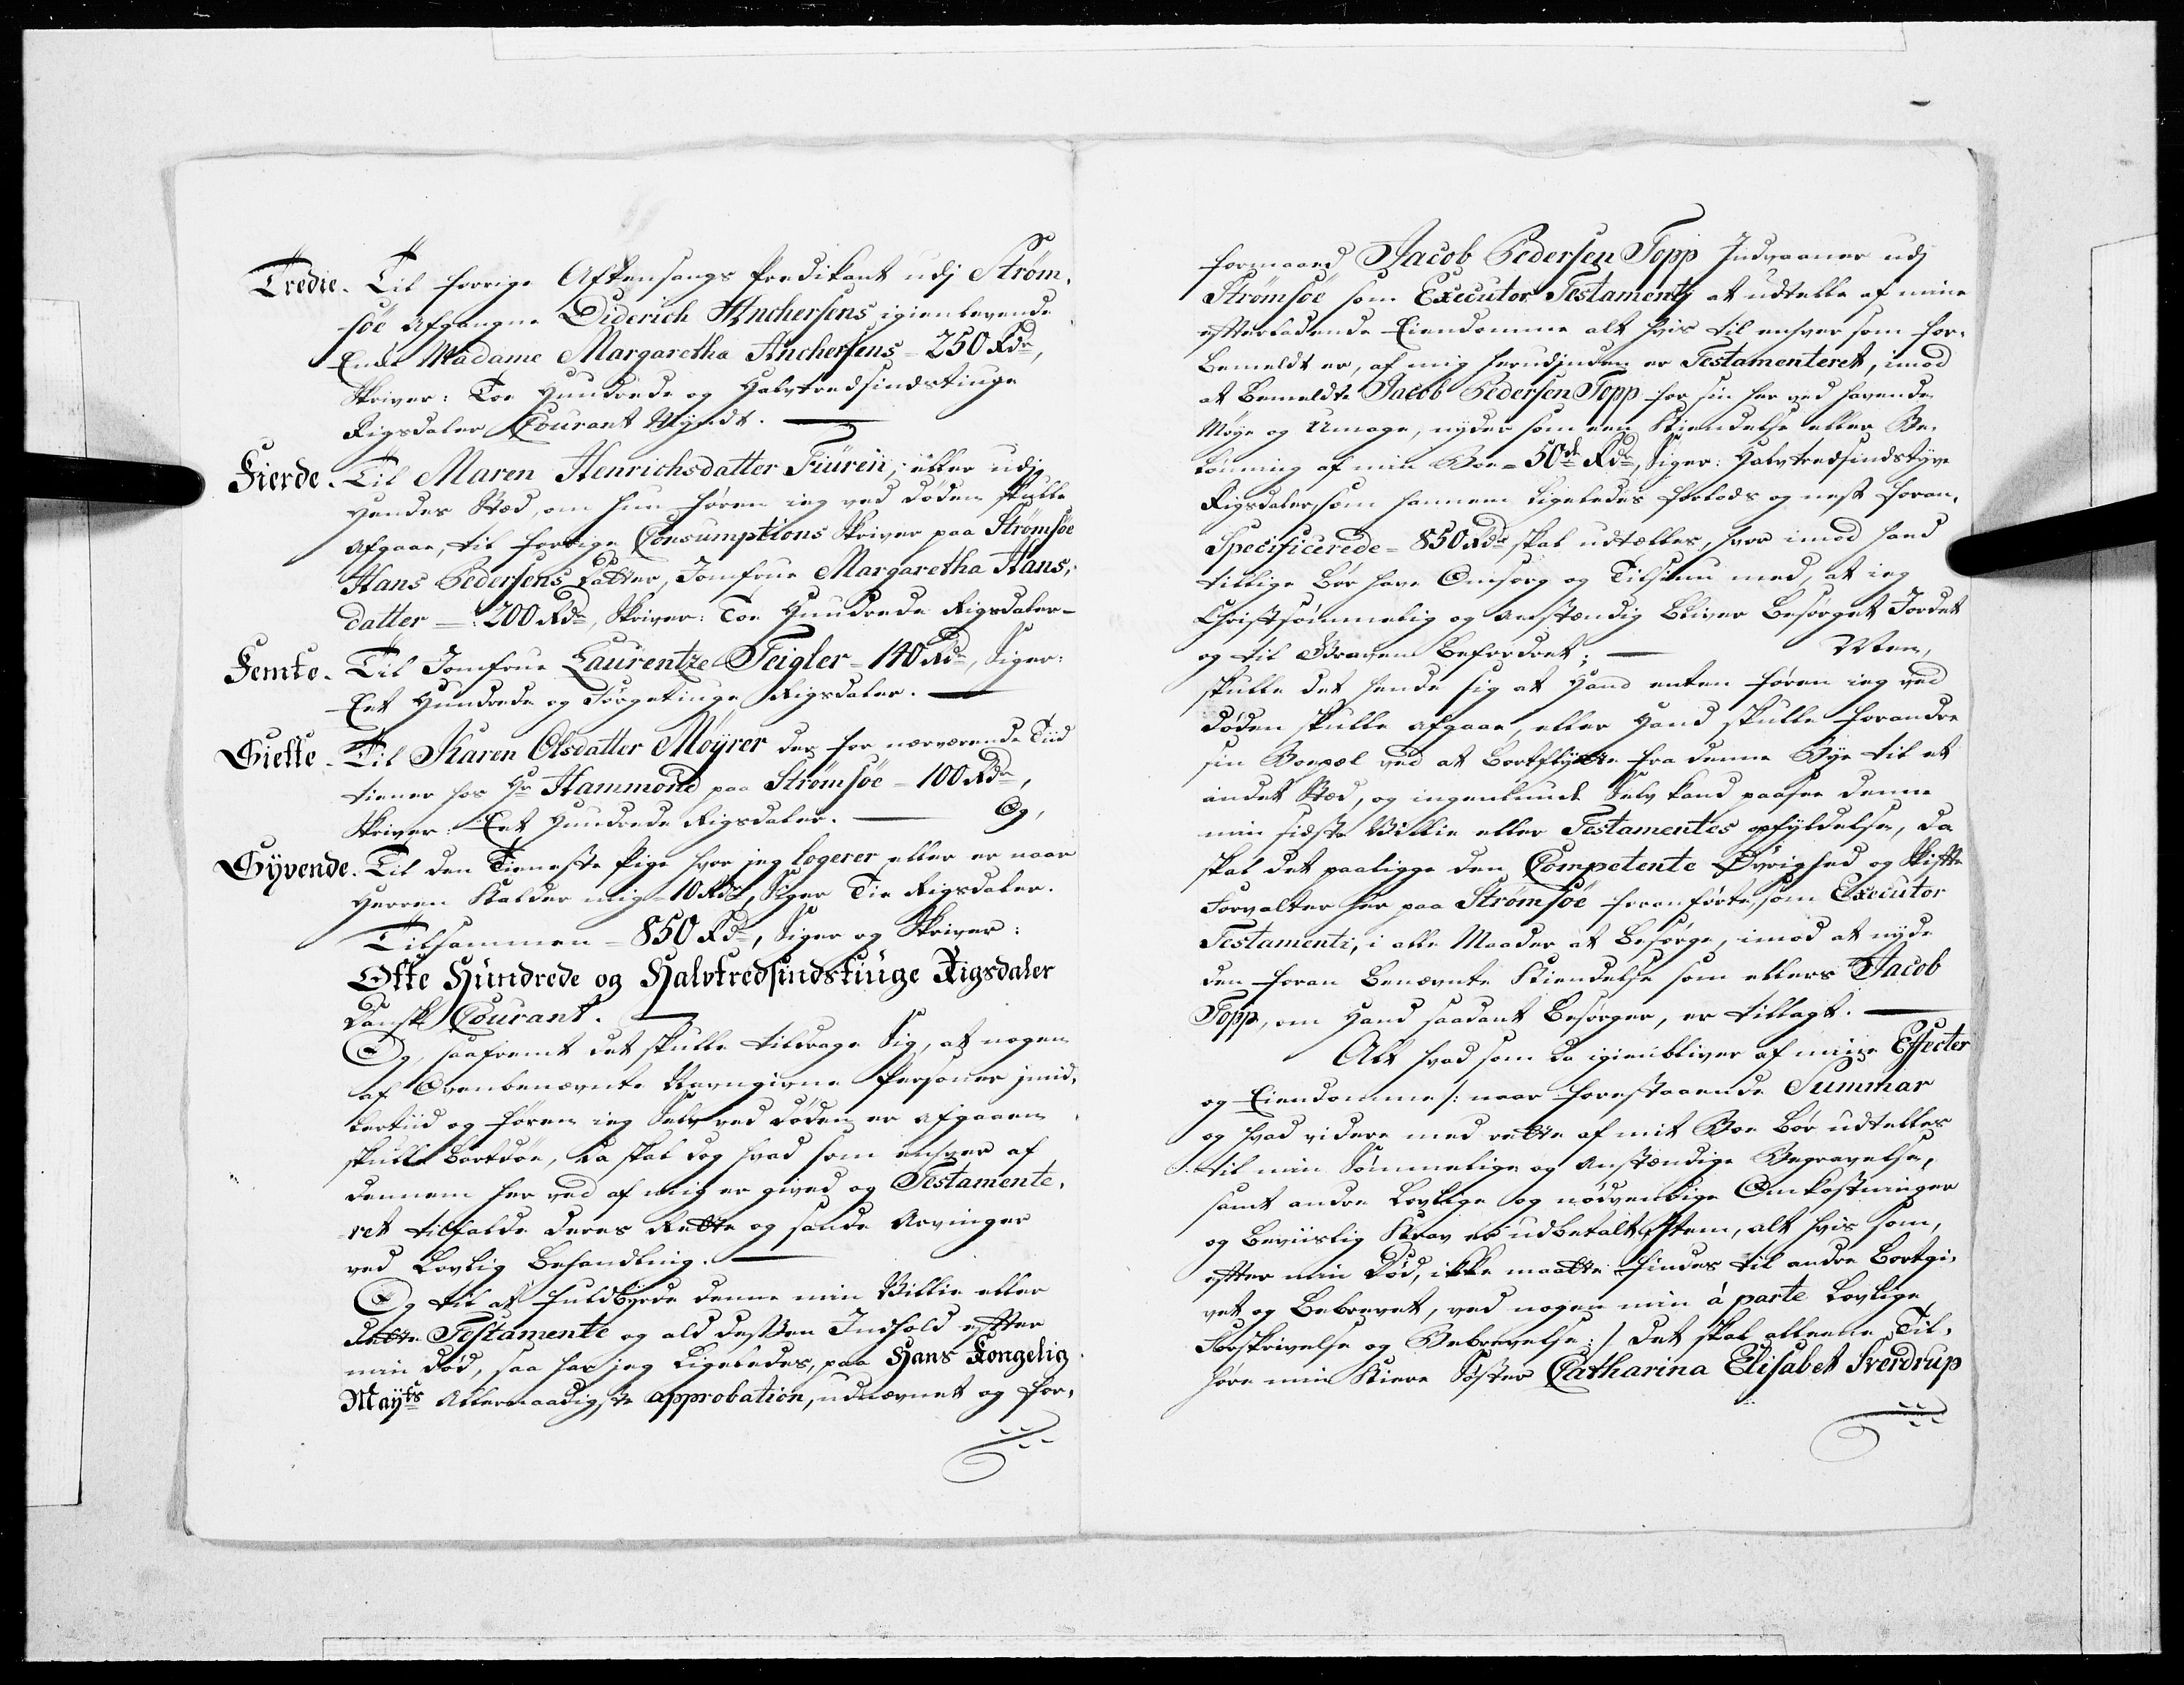 Tredie. Til forrige Aftensangs Predikant udj Strøm-
søe Afgangne Diderich Anchersens igienlevende
Enke Madame Margaretha Anchersens = 250 Rdr,
Skriver: Toe Hundrede og Halvtredsindstiuge
Rigsdaler Courant Mÿndt.
Fierde. Til Maren Henrichsdatter Fiúren, eller udj
Hendes Stæd, om hun føren ieg ved Døden skulle
Afgaae, til forrige Consumptions Skriver paa Strømsøe
Hans Pedersens Datter, Jomfrue Margaretha Hans,
datter = 200 Rdr, Skriver: Toe Hundrede Rigsdaler-
Femte. Til Jomfrue Laurentze Teigler = 140 Rdr, Siger:
Eet Hundrede og Førgetiuge Rigsdaler.
Siette. Til Karen Olsdatter Møÿrer der for nærværende Tiid
tiener hos Hr Hammond paa Strømsøe = 100 Rdr,
Skriver: Eet Hundrede Rigsdaler. Og,
Sÿvende. Til den Tieneste Pige hvor jeg logerer eller er naar
Herren Kalder mig = 10 Rdr, Siger Tie Rigsdaler.
Tilsammen = 850 Rdr, Siger og Skriver:
Otte Hündrede og Halvtredsindstiüge Rigsdaler
Danske Courant.
Og, saafremt det skulle tildrage Sig, at nogen
af Ovenbenævnte Navngivne Personer imid,
lertiid og føren ieg Selv ved Døden er afgaaen
skulle bortdøe, da skal dog hvad som enhver af
dennem her ved af mig er gived og Testamente,
ret tilfalde deres Rette og sande Arvinger
ved Lovlig Behandling.
Og til at fuldbyrde denne min Villie eller
dette Testamente og ald dessen Indhold efter
min Død, saa har jeg Ligeledes, paa Hans Kongelig
Mayts Allernaadigste approbation, udnævnet og for,
formaaed Jacob Pedersen Topp Indvaaner udj
Strømsøe som Executor Testamentj at udtelle af mine
efterladende Eiendomme alt hvis til enhver som for-
bemeldt er, af mig herudjnden er Testamenteret, imod
at bemeldte Jacob Pedersen Topp for sin her ved havende
Møÿe og Umage, nyder som een Kiendelse eller Be-
lønning af min Boe = 50de Rdr, Siger: Halvtredsindstÿve
Rigsdaler, som hannem Ligeledes forlods og nest foran,
Specificerede = 850 Rdr skal udtælles, hvor imod hand
tillige bør have Omsorg og Tilsiun med, at ieg
Christsømmelig og anstændig bliver besørget Jordet
og til Graven befordret; Men,
skulle det hende sig at Hand enten føren ieg ved
Døden skulle afgaae, eller Hand skulle forandre
sin Boepæl ved at bortflytte fra denne Bye til et
andet Stæd, og ingenlunde Selv kand paasee denne
min sidste Villie eller Testamentes opfyldelse, da
skal det paaligge den Competente Øvrighed og Skifte
Forvalter her paa Strømsøe foranførte, som Executor
Testamenti, i alle Maader at besørge, imod at nyde
den foran benævnte Kiendelse som ellers Jacob
Topp, om Hand saadant besørger, er tillagt.
Alt hvad som da igienbliver af mine Effecter
og Eiendomme /: naar forestaaende Summar
og hvad videre med rette af mit Boe bør udtelles
til min Sømmelige og Anstændige Begravelse,
samt andre Lovlige og nødvendige Omkostninger
og beviislig Krav er udbetalt Item, alt hvis som,
efter min Død, ikke maatte findes til andre bortgi-
vet og bebrevet, ved nogen min à parte Lovlige
Forskrivelse og Bebrevelse :/ det skal alleene Til,
høre min Kiere Søster Catharina Elisabet Sverdrup